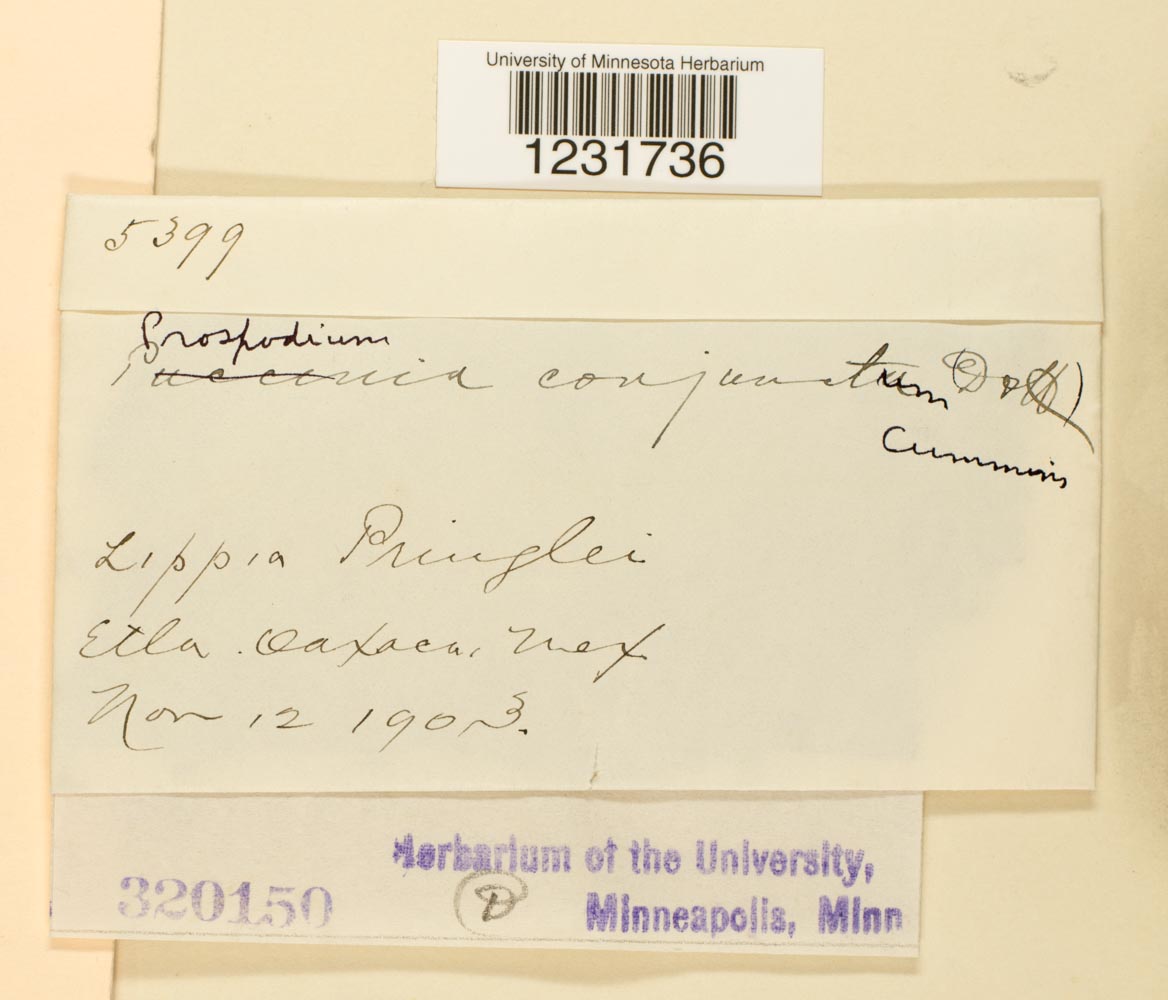 University of Minnesota Herbarium
1231736
5399
Prospodium
Puccinia conjunctum (D & H)
Cummins
Lippia Pringlei
Etla. Oaxaca, Mex
Nov 12 1903.
Herbarium of the University,
320150 D Minneapolis, Minn